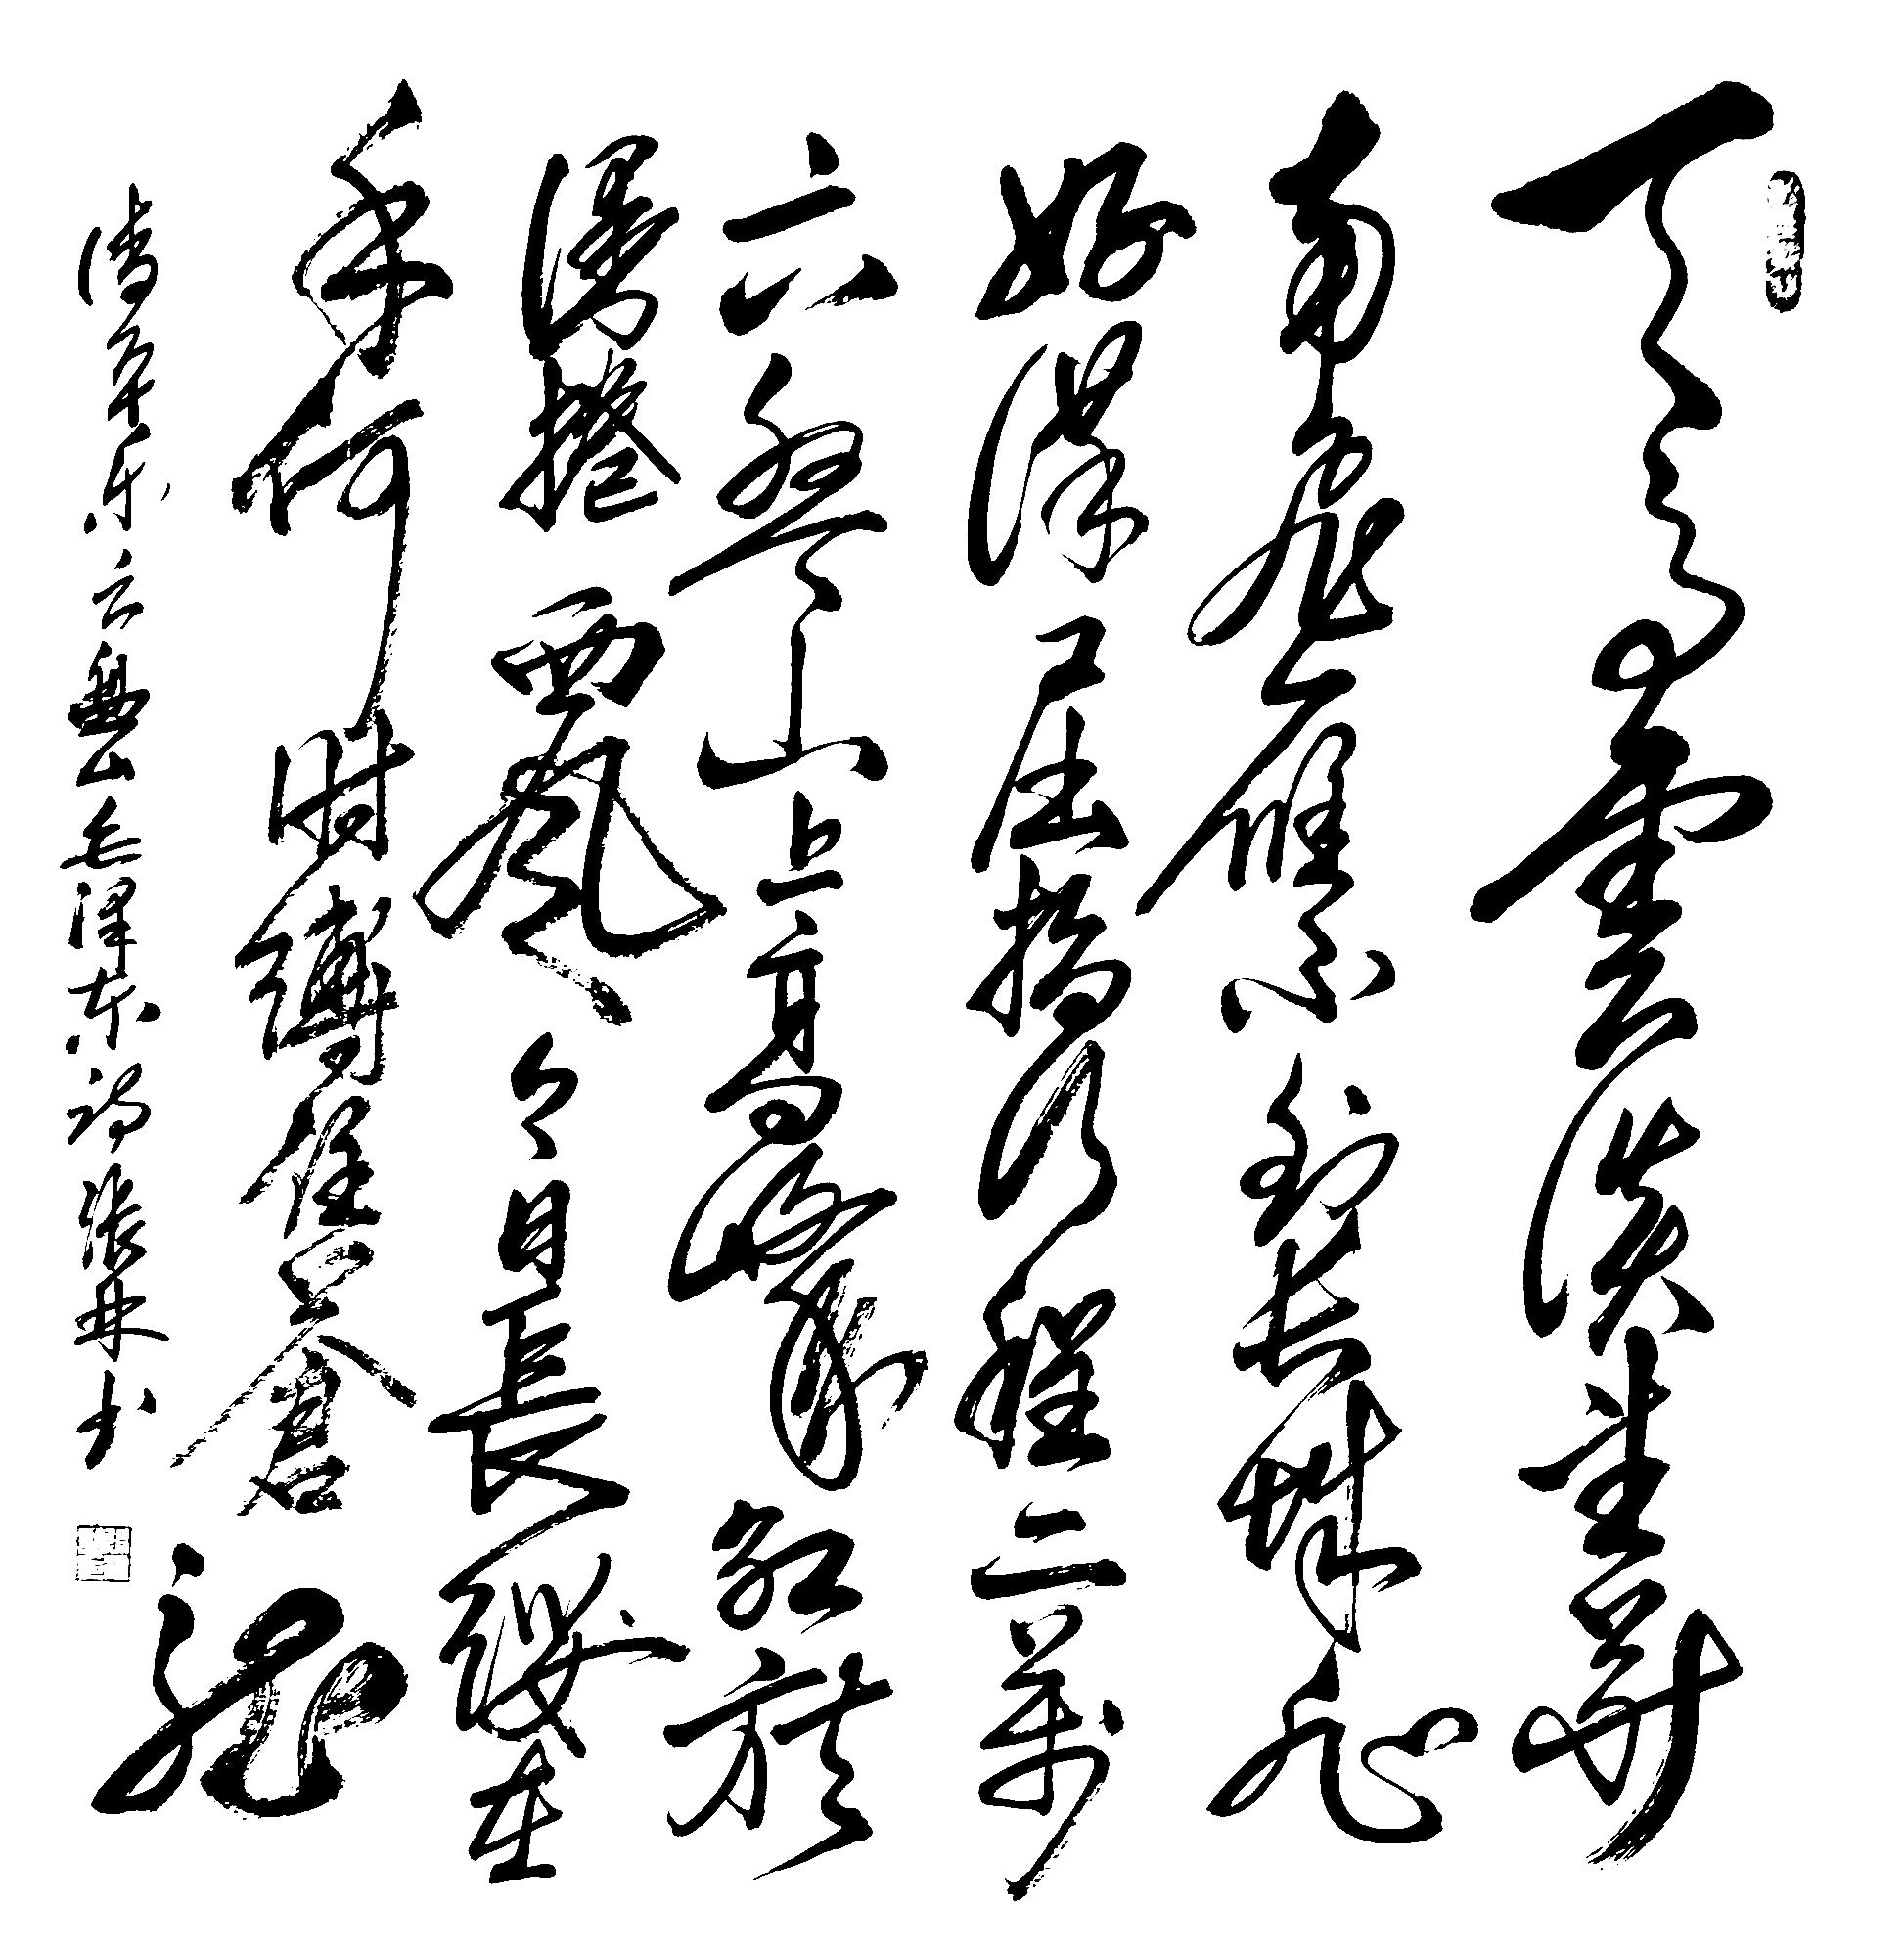 天高雲淡望断
南飛雁不到长城非
好漢屈指行程二萬
六盤山上高峰紅旗
漫捲西風今日長纓在
手何時縛住蒼龍
清平乐六盤山毛泽东诗張林书